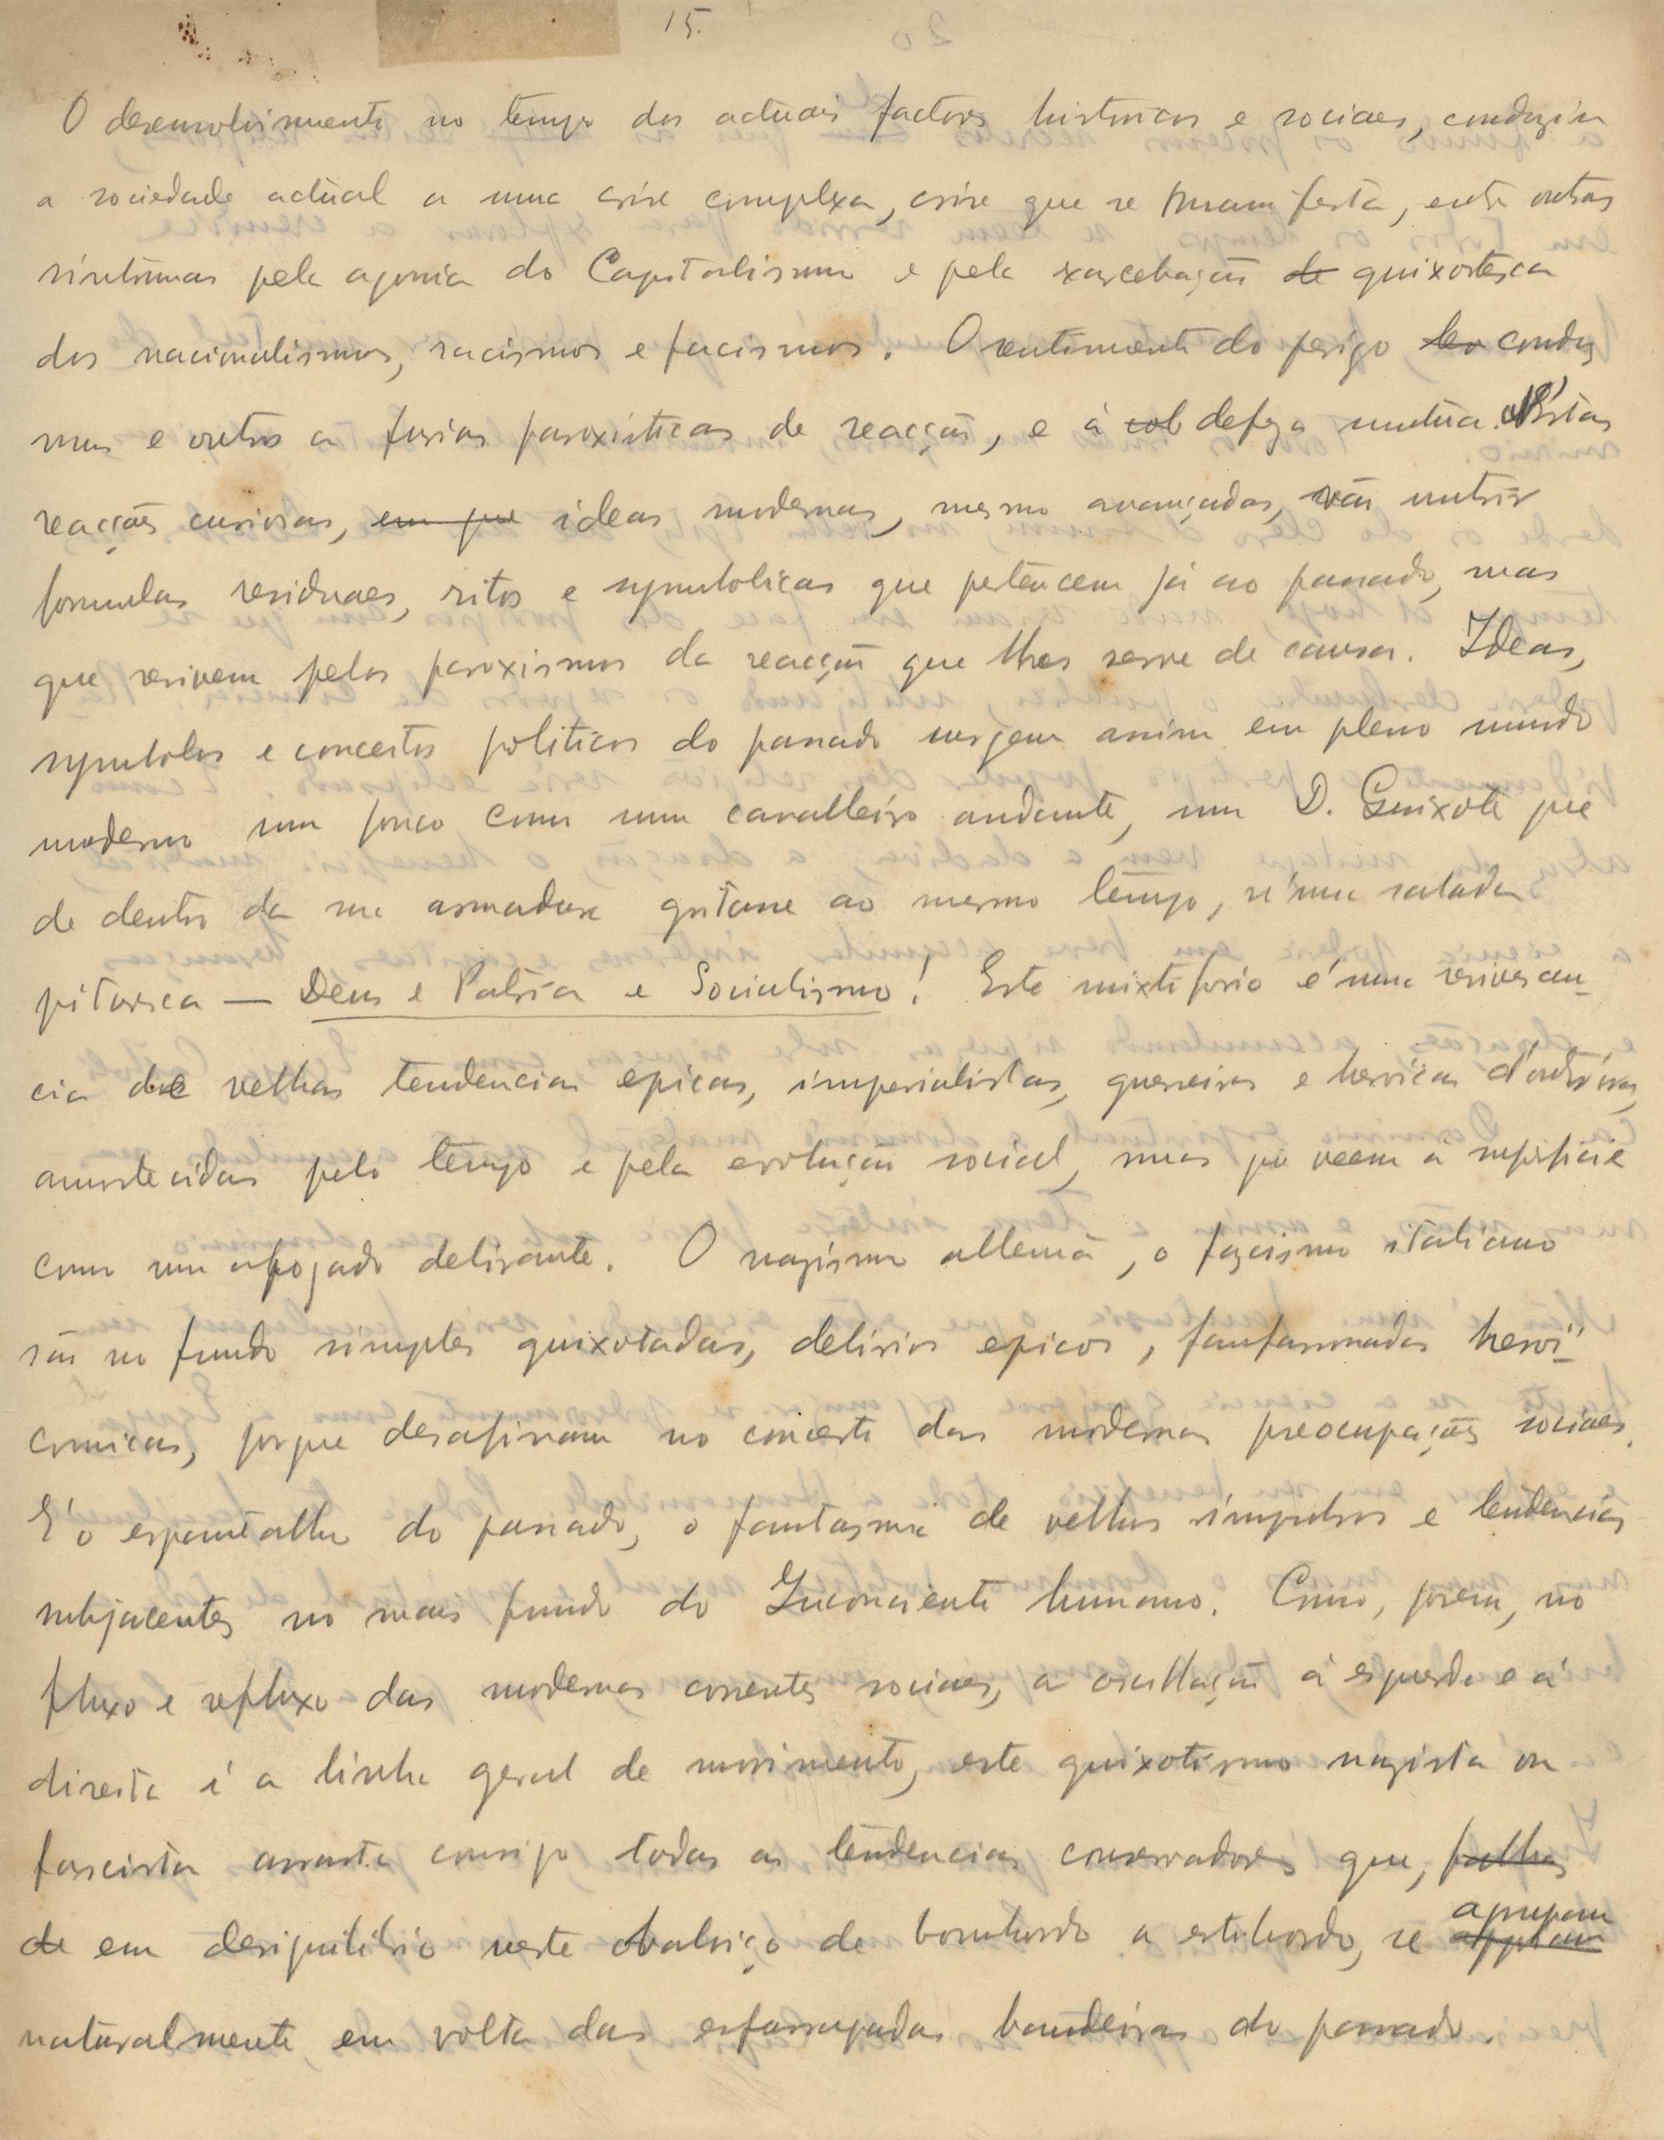 15.
O desenvolvimento no tempo dos actuaes factores historicos e sociaes, conduziu
a sociedade actual a uma crise complexa, crise que se manifesta, entre outros
sintomas pela agonia do Capitalismo e pela exarcebação de quixotesca
dos nacionalismos, racismos e facismos. O sentimento do perigo conduz
uns e outros a furias paroxisticas de reacção, e á sob defeza mutua. N'estas
reacções curiosas, em que ideas modernas, mesmo avançadas, vão nutrir
formulas residuaes, ritos e symbolicas que pertencem já ao passado, mas
que revivem pelos paroxismos da reacção que lhes serve de causa. Ideas,
symbolos e conceitos politicos do passado surgem assim em pleno mundo
moderno um pouco como um cavalleiro andante, um D. Quixote que
de dentro da sua armadura gritasse ao mesmo tempo, n'uma salada
pitoresca — Deus e Patria e Socialismo! Este mixtiforio é uma reviviscen-
cia de velhas tendencias epicas, imperialistas, guerreiras e heroicas d'outróra,
amortecidas pelo tempo e pela evolução social, mas que veem á superficie
como um afogado delirante. O nazismo allemão, o fazcismo italiano
são no fundo simples quixotadas, delirios epicos, fanfarronadas heroi-
comicas, porque desafinam no concerto das modernas preocupações sociaes.
E' o espantalho do passado, o fantasma de velhos impulsos e tendencias
subjacentes no mais fundo do Inconsciente humano. Como, porem, no
fluxo e refluxo das modernas correntes sociaes, a oscillação á esquerda e á
direita é a linha geral de movimento, este quixotismo nazista ou
fascista arrasta comsigo todas as tendencias conservadoras que, falhas
de em desiquilibrio neste balouço de bombordo a estibordo, se agrupam
naturalmente em volta das esfarrapadas bandeiras do passado.